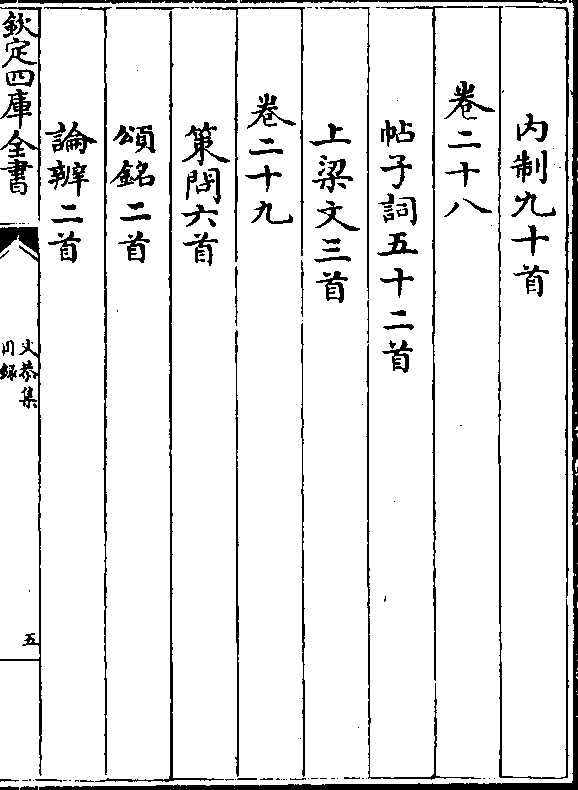 内制九十首
卷二十八
帖子詞五十二首
上梁文三首
卷二十九
策問六首
頌銘二首
論辨二首
欽定四庫全書
文恭集
目録
五